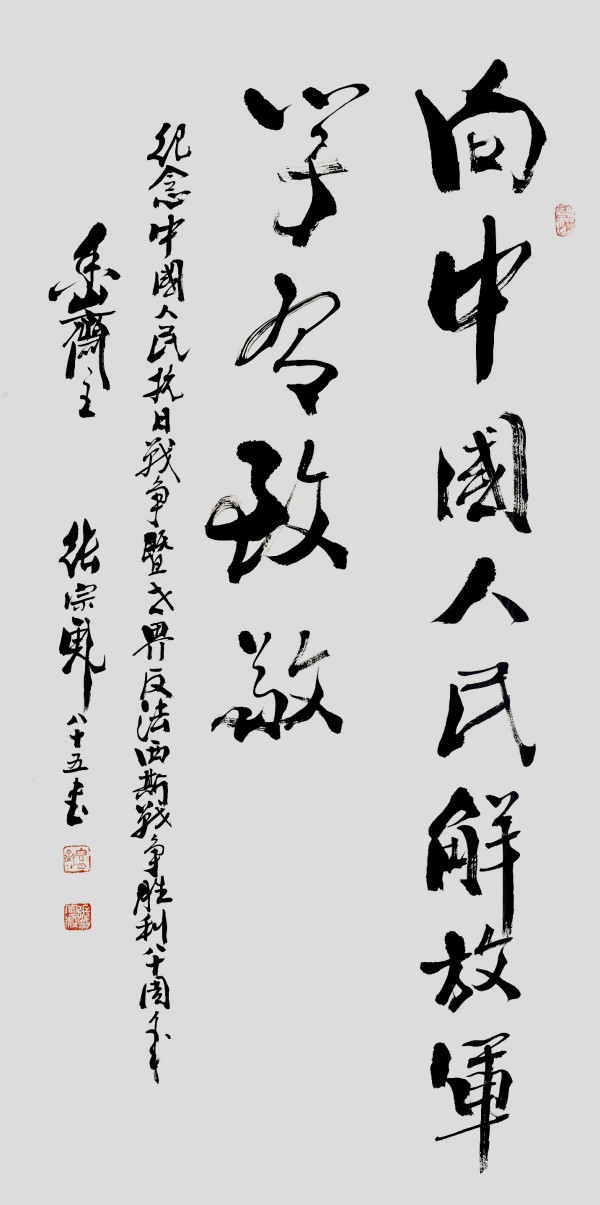 向中國人民解放軍
学習致敬
紀念中國人民抗日戰争暨世界反法西斯戰争胜利八十周年
齋主 張宗 八十五書